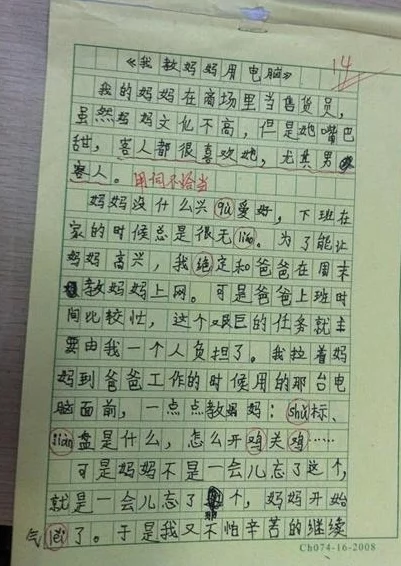 《我教妈妈用电脑》
14
我的妈妈在商场里当售货员，
虽然妈妈文化不高，但是她嘴巴
甜，客人都很喜欢她，尤其男
客人。用词不恰当
妈妈没什么兴qù爱好，下班在
家的时候总是很无liáo。为了能让
妈妈高兴，我绝定和爸爸在周末
教妈妈上网。可是爸爸上班时
间比较忙，这个艰巨的任务就主
要由我一个人负担了。我拉着妈
妈到爸爸工作的时候用的那台电
脑面前，一点点教妈妈：shǔ标、
jiàn盘是什么，怎么开鸡关鸡……
可是妈妈不是一会儿忘了这个，
就是一会儿忘了那个，妈妈开始
气了。于是我又不怕辛苦的继续
Ch074-16-2008